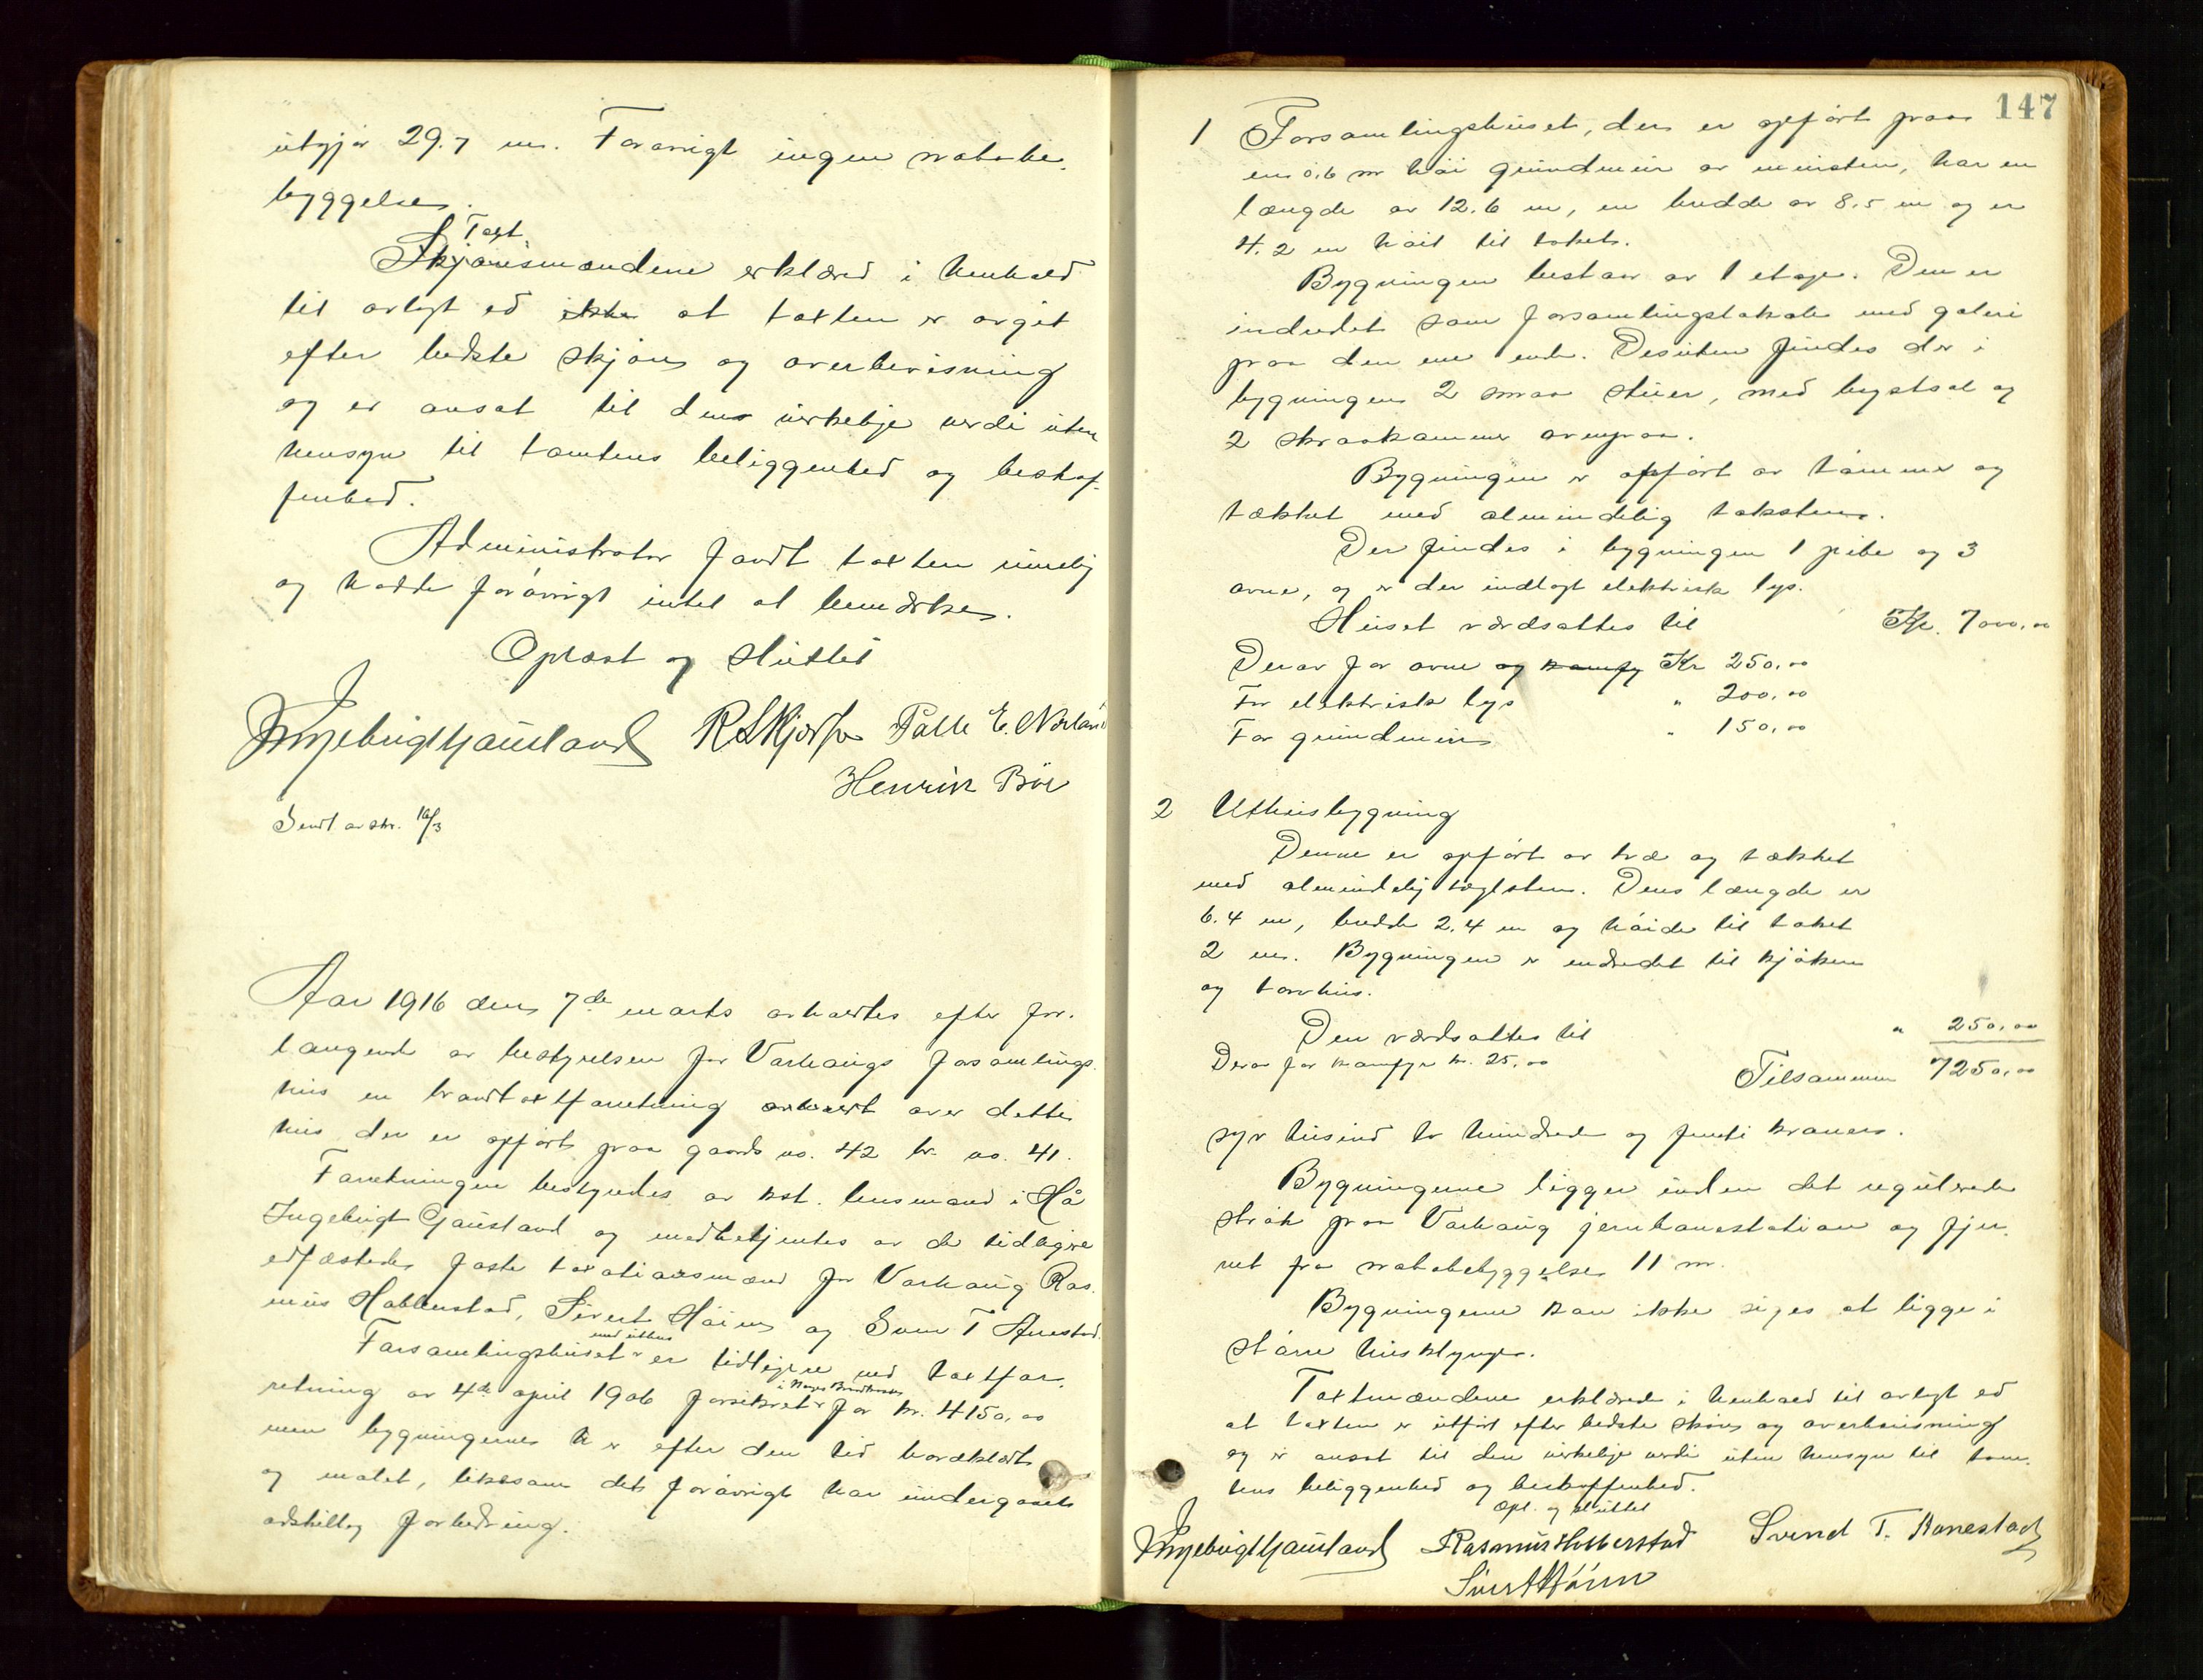 utgjør 29.7 m. Forøvrigt ingen nabobe-
byggelse.
Taxt
Skjønsmændene erklæred i henhold
til avlagt ed ikke at taxten er avgit
efter bedste skjøn og overbevisning
og er ansat til den virkelige verdi uten
hensyn til tomtens beliggenhed og beskaf-
fenhed.
Administrator fandt taxten rimelig
og hadde forøvrigt intet at bemærke.
Oplæst og sluttet
Ingebrigt Gausland RSkjorstad Palle E. Norland
Henrik Böe
Sendt avskr. 16/3
Aar 1916 den 7de marts avholdtes efter for-
langende av bestyrelsen for Varhaugs forsamlings-
hus en brandtaxtforretning avholdt over dette
hus der er opført paa gaards no. 42 br. no. 41.
Forretningen bestyredes av kst. lensmand i Hå
Ingebrigt Gausland og medbetjentes av de tidligere
edfæstede faste taxationsmænd for Varhaug Ras-
mus Hobberstad, Sivert Höien og Sven T Anestad.
med uthus
Forsamlingshuset er tidligere ved taxtfor-
i Norges Brandkasse
retning av 4de april 1906 forsikret for kr. 4150,00
men bygningerne er efter den tid bordklædt
og malet, likesom det forøvrigt har undergaaet
adskillig forbedring.
147
1 Forsamlingshuset, der er opført paa
en 0,6 m høi grundmur av mursten, har en
længde av 12.6 m, en bredde av 8.5 m og er
4.2 m høit til taket.
Bygningen bestaar av 1 etage. Den er
indredet som forsamlingslokale med galleri
paa den ene ende. Desuten findes der i
bygningen 2 smaa stuer, med bystsal og
2 skraakammer ovenpaa.
Bygningen er opført av tømmer og
tækket med almindelig taksten.
Der findes i bygningen 1 pibe og 3
ovne, og er der indlagt elektrisk lys.
Huset værdsattes til Kr. 7000,00
Derav for ovne og komfy Kr 250,00
For elektrisk lys " 200,00
For grundmur " 150,00
2 Uthusbygning
Denne er opført av træ og tækket
med almindelig taglsten. Dens længde er
6.4 m, bredde 2.4 m og høide til taket
2 m. Bygningen er indredet til kjøken
og torvhus.
Den værdsattes til " 250,00
Derav for komfyr kr. 25,00
Tilsammen 7250,00
syv tusind to hundrede og femti kroner.
Bygningerne ligger inden det regulerede
strøk paa Varhaug jernbanestation og fjer-
net fra nabobebyggelse 11 m.
Bygningerne kan ikke siges at ligge i
større husklynge.
Taxtmændene erklærede i henhold til avlagt ed
at taxten er utført efter bedste skjøn og overbevisning
og er ansat til den virkelige verdi uten hensyn til tom-
tens beliggenhed og beskaffenhed.
Opl. og sluttet
Ingebrigt Gausland Rasmus Hobberstad Svend T. Aanestad
Sivert Höien